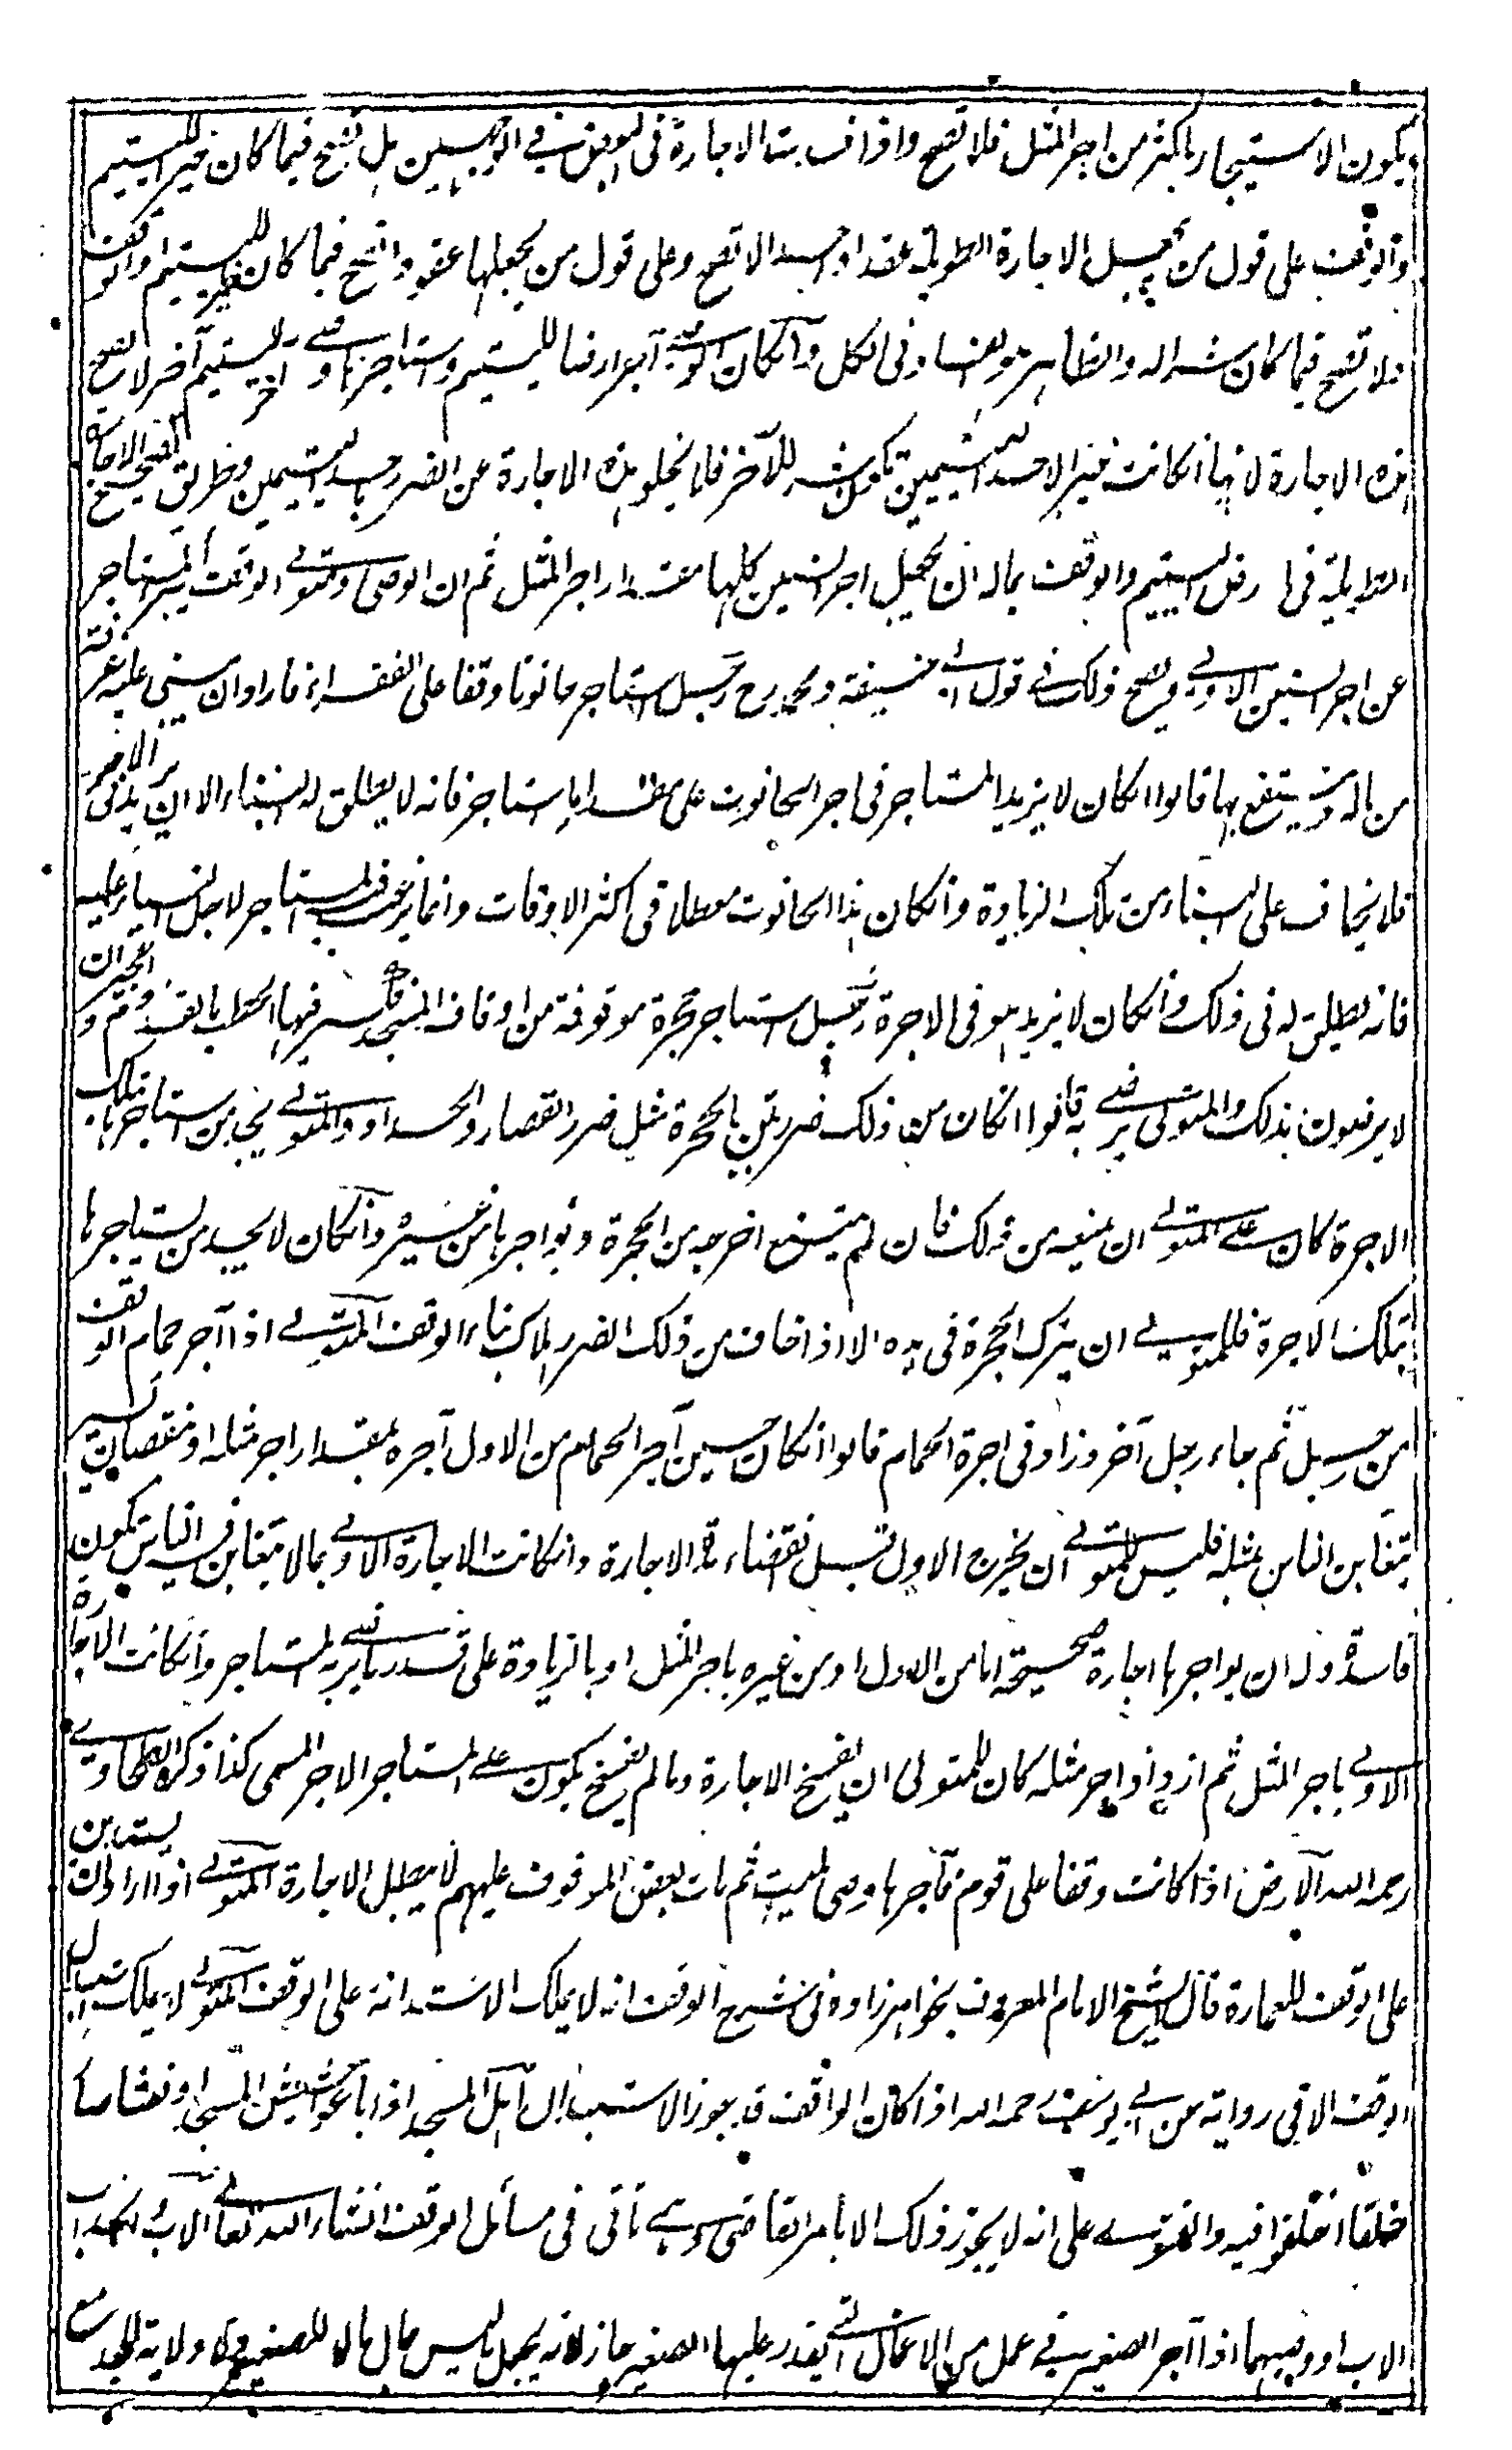 ويكون الاستيجار باكثر من اجر المثل فلا تصح واذا فسدت الاجارة فى البعض فى الوجهين بل تصح فيما كان خيرا لليتيم
والوقف على قول من يجعل الاجارة الطويلة عقدا واحدا لا تصح وعلى قول من يجعلها عقودا تصح فيما كان خيرا لليتيم والوقف
ولا تصح فيما كان شرا له والظاهر هو الفساد فى الكل وان كان الوصى آجر ارضا لليتيم واستاجرها وصى آخر ليتيم آخر لا تصح
هذه الاجارة لانها ان كانت خيرا لاحد اليتيمين تكون شرا للآخر فلا يخلو هذه الاجارة عن الضرر باحد اليتيمين وطريق تصحيح الاجارة
الطويلة فى ارض اليتيم والوقف بماله ان يجعل اجر السنين كلها مقدار اجر المثل ثم ان الوصى ومتولى الوقف يبرئ المستاجر
عن اجر السنين الاولى ويصح ذلك فى قول ابى حنيفة ومحمد رح رجل استاجر حانوتا وقفا على الفقراء فاراد ان يبنى عليه غرفة
من ماله وينتفع بها قالوا ان كان لا يزيد المستاجر فى اجر الحانوت على مقدار ما استاجر فانه لا يطلق له البناء الا ان يزيد فى الاجر
فلا يخاف على البناء من تلك الزيادة وان كان هذا الحانوت معطلا فى اكثر الاوقات وانما يرغب فيه المستاجر لاجل البناء عليه
فانه يطلق له فى ذلك وان كان لا يزيد هو فى الاجرة رجل استاجر حجرة موقوفة من اوقاف المسجد فكسر فيها الحطب بالقدوم والجيران
لا يرضون بذلك والمتولى يرضى به قالوا ان كان من ذلك ضرر بين بالحجرة مثل ضرر القصار والحداد والمتولى يجد من يستاجرها بتلك
الاجرة كان على المتولى ان يمنعه من ذلك فان لم يمتنع اخرجه من الحجرة ويؤاجرها من غيره وان كان لا يجد من يستاجرها
بتلك الاجرة فللمتولى ان يترك الحجرة فى يده الا اذا خاف من ذلك الضرر هلاك بناء الوقف المتولى اذا آجر حمام الوقف
من رجل ثم جاء رجل آخر وزاد فى اجرة الحمام قالوا ان كان حين آجر الحمام من الاول آجره بمقدار اجر مثله او بنقصان يسير
يتغابن الناس بمثله فليس للمتولى ان يخرج الاول قبل انقضاء مدة الاجارة وان كانت الاجارة الاولى بما لا يتغابن فيه الناس تكون
فاسدة وله ان يواجرها اجارة صحيحة اما من الاول او من غيره باجر المثل او بالزيادة على قدر ما يرضى به المستاجر وان كانت الاجارة
الاولى باجر المثل ثم ازداد اجر مثله كان للمتولى ان يفسخ الاجارة وما لم يفسخ يكون على المستاجر الاجر المسمى كذا ذكره الطحاوى
رحمه الله الارض اذا كانت وقفا على قوم فآجرها وصى الميت ثم مات بعض الموقوف عليهم لا يبطل الاجارة المتولى اذا اراد ان يستدين
على الوقف للعمارة قال الشيخ الامام المعروف بخواهرزاده فى شرح الوقف انه لا يملك الاستدانة على الوقف المتولى لا يملك استبدال
الوقف الا فى رواية عن ابى يوسف رحمه الله اذا كان الواقف قد جوز الاستبدال اهل المسجد اذا باعوا حشيش المسجد او نعشا صار
خلقا اختلفوا فيه والفتوى على انه لا يجوز ذلك الا بامر القاضى وهى تأتى فى مسائل الوقف انشاء الله تعالى الاب والجد اب
الاب او وصيهما اذا آجر الصغير فى عمل من الاعمال التى يقدر عليها الصغير جاز لانه يجعل ما ليس بمال مالا للصغير ولا ولاية للجد مع